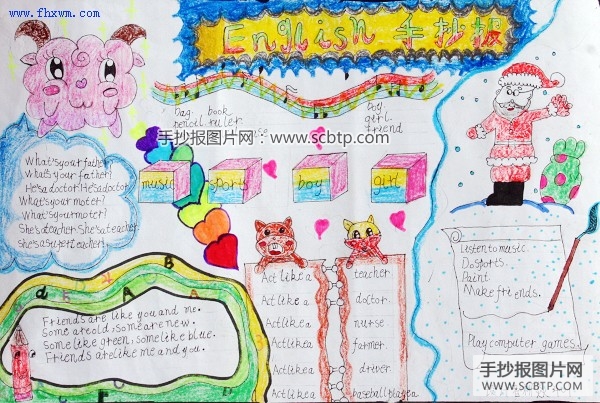 www.fhxwm.com
English 手抄报
Dag book
pencil ruler
Boy
girl
friend
手抄报图片网：www.scbtp.com
music
sports
boy
girl
What's your father
What's your father?
He's a doctor. He's a doctor
What's your moter?
What's your moter?
She's a teacher. She's a teacher
she's a super teacher!
Listen to music.
Do sports.
Paint
Make friends.
Play computer games.
Friends are like you and me.
Some are old, some are new.
Some like green, some like blue.
Friends are like me and you.
Act like a teacher
Act like a doctor
Act like a nurse
Act like a farmer
Act like a driver
Act like a baseball player
手抄报图片网
www.SCBTP.com